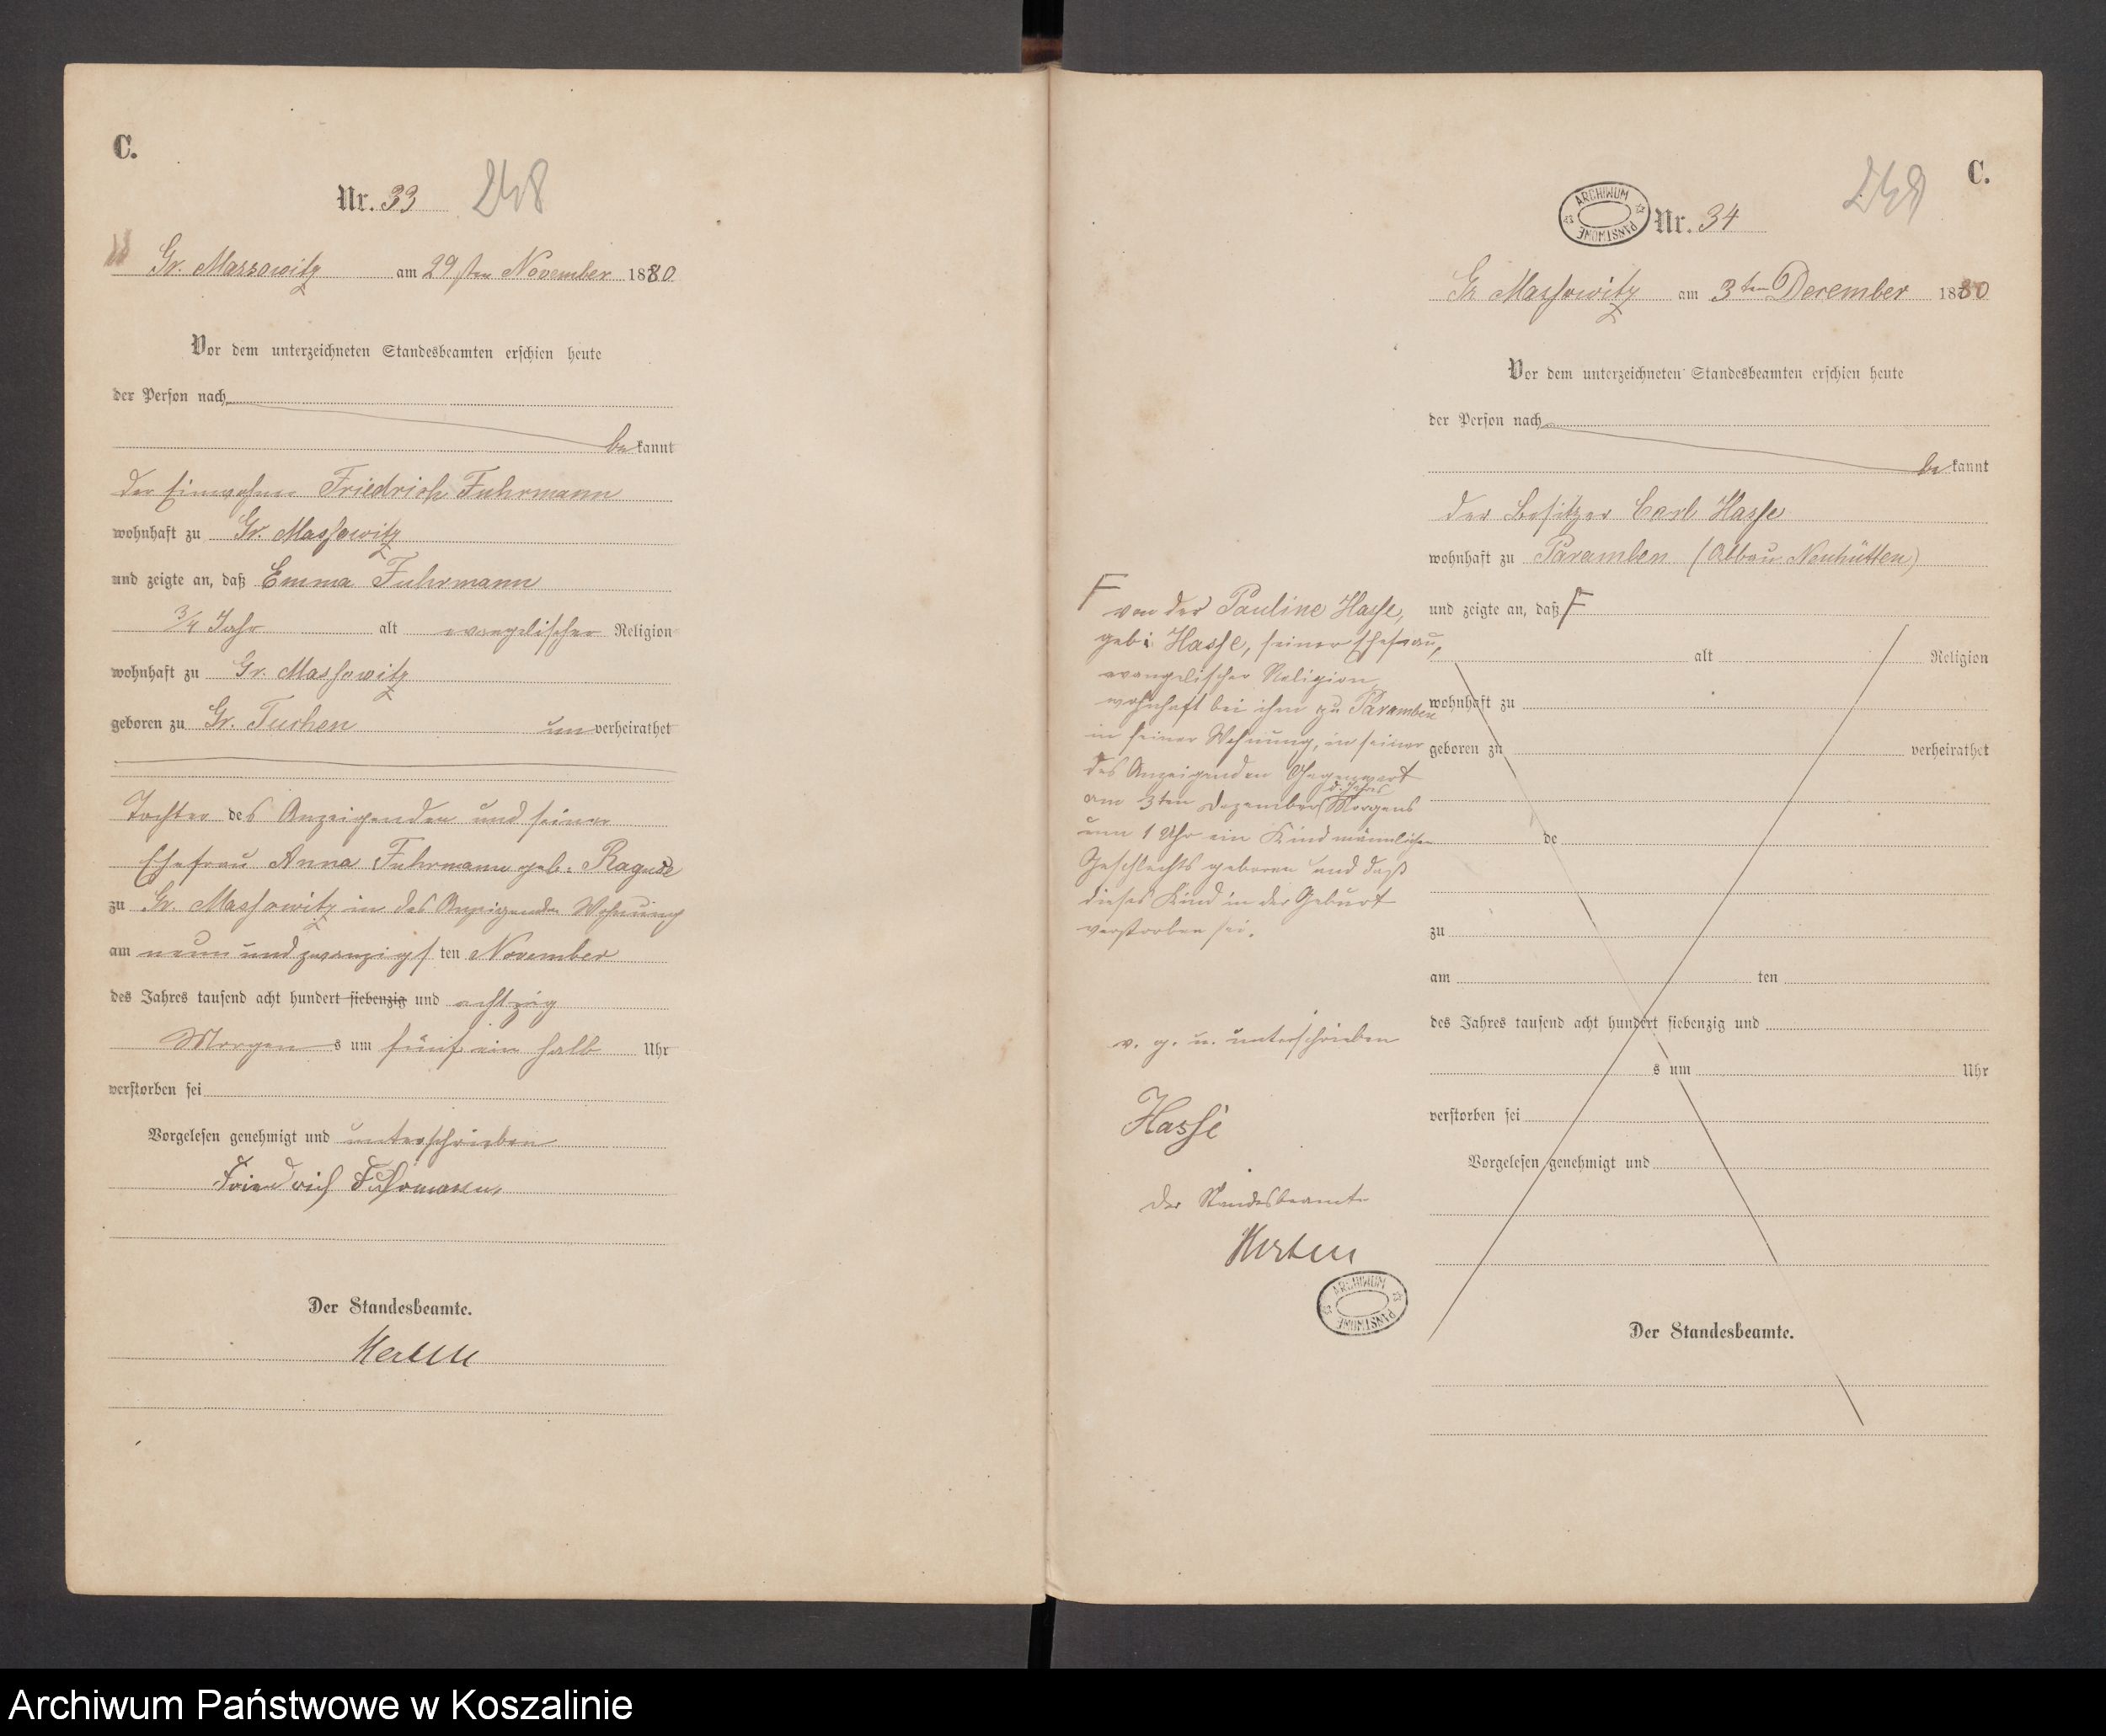 C.
Nr. 33 248
Gr. Massowitz am 29sten November 1880
Vor dem unterzeichneten Standesbeamten erschien heute
der Person nach
bekannt
der Einwohner Friedrich Fuhrmann
wohnhaft zu Gr. Massowitz
und zeigte an, daß Emma Fuhrmann
3/4 Jahr alt evangelischer Religion
wohnhaft zu Gr. Massowitz
geboren zu Gr. Tuchen unverheirathet
Tochter des Anzeigenden und seiner
Ehefrau Anna Fuhrmann geb. Raguse
zu Gr. Massowitz in des Anzeigenden Wohnung
am neun und zwanzigsten November
des Jahres tausend acht hundert siebenzig und achtzig
Morgens um fünf ein halb Uhr
verstorben sei
Vorgelesen genehmigt und unterschrieben
Friedrich Fuhrmann
Der Standesbeamte.
C.
249
ARCHIWUM PAŃSTWOWE
Nr. 34
Gr Massowitz am 3ten December 1880
Vor dem unterzeichneten Standesbeamten erschien heute
der Person nach
bekannt
der Besitzer Carl Hasse
wohnhaft zu Paramben (Abbau Neuhütten)
und zeigte an, daß F
alt Religion
wohnhaft zu
geboren zu verheirathet
de
zu
am ten
des Jahres tausend acht hundert siebenzig und
s um Uhr
verstorben sei
Vorgelesen genehmigt und
Der Standesbeamte.
F
von der Pauline Hasse,
geb. Hasse, seiner Ehefrau,
evangelischer Religion
wohnhaft bei ihm zu Paramben
in seiner Wohnung, in seiner
des Anzeigenden Gegenwart
am 3ten Dezember d. Jahres Morgens
um 1 Uhr ein Kind männlichen
Geschlechts geboren und daß
dieses Kind in der Geburt
verstorben sei.
v. g. u. unterschrieben
Hasse
Der Standesbeamte
ARCHIWUM PAŃSTWOWE
Archiwum Państwowe w Koszalinie